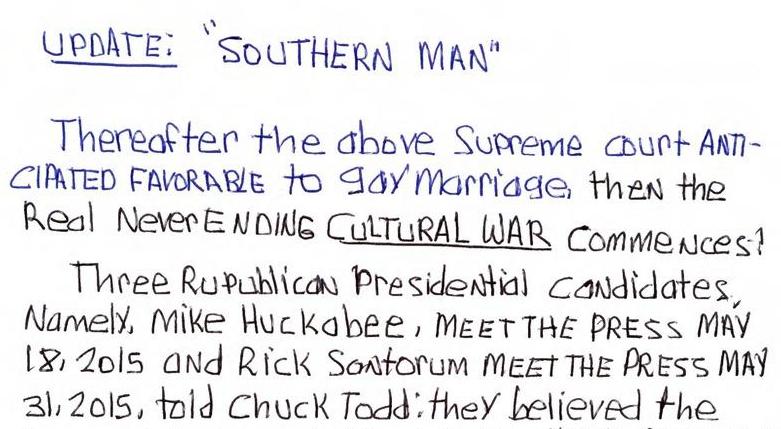 UPDATE: "SOUTHERN MAN"
Thereafter the above Supreme court ANTI-
CIPATED FAVORABLE to gay marriage, then the
Real Never ENDING CULTURAL WAR Commences!
Three Rupublican Presidential candidates,
Namely, Mike Huckabee, MEET THE PRESS MAY
18, 2015 and Rick Santorum MEET THE PRESS MAY
31, 2015, told Chuck Todd: they believed the